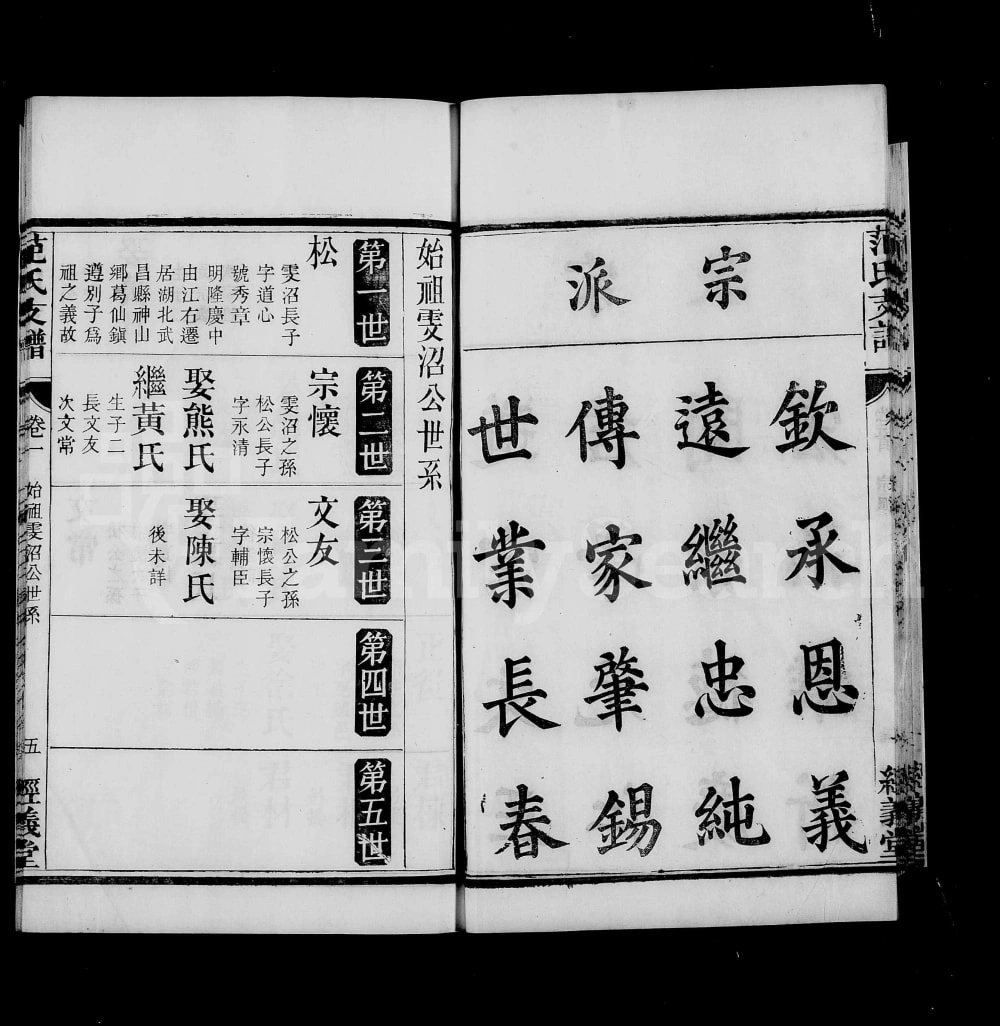 宗派
欽承恩義
遠繼忠純
傳家肇錫
世業長春
經義堂
始祖雯沼公世系
第一世
松
雯沼長子
字道心
號秀章
明隆慶中
由江右遷
居湖北武
昌縣神山
鄉葛仙鎮
遵別子為
祖之義故
第二世
宗懷
雯沼之孫
松公長子
字永清
娶熊氏
繼黃氏
生子二
長文友
次文常
第三世
文友
松公之孫
宗懷長子
字輔臣
娶陳氏
後未詳
第四世
第五世
范氏支譜
卷一
始祖雯沼公世系
五
經義堂